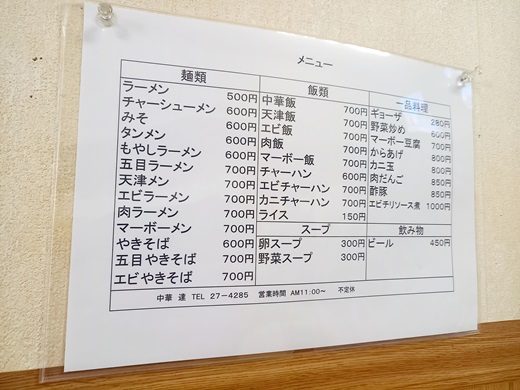 メニュー
麺類
ラーメン 500円
チャーシューメン 600円
みそ 600円
タンメン 600円
もやしラーメン 600円
五目ラーメン 700円
天津メン 700円
エビラーメン 700円
肉ラーメン 700円
マーボーメン 700円
やきそば 600円
五目やきそば 700円
エビやきそば 700円
飯類
中華飯 700円
天津飯 700円
エビ飯 700円
肉飯 700円
マーボー飯 700円
チャーハン 600円
エビチャーハン 700円
カニチャーハン 700円
ライス 150円
スープ
卵スープ 300円
野菜スープ 300円
一品料理
ギョーザ 280円
野菜炒め 600円
マーボー豆腐 700円
からあげ 800円
カニ玉 800円
肉だんご 850円
酢豚 850円
エビチリソース煮 1000円
飲み物
ビール 450円
中華 達 TEL 27-4285 営業時間 AM11:00〜 不定休